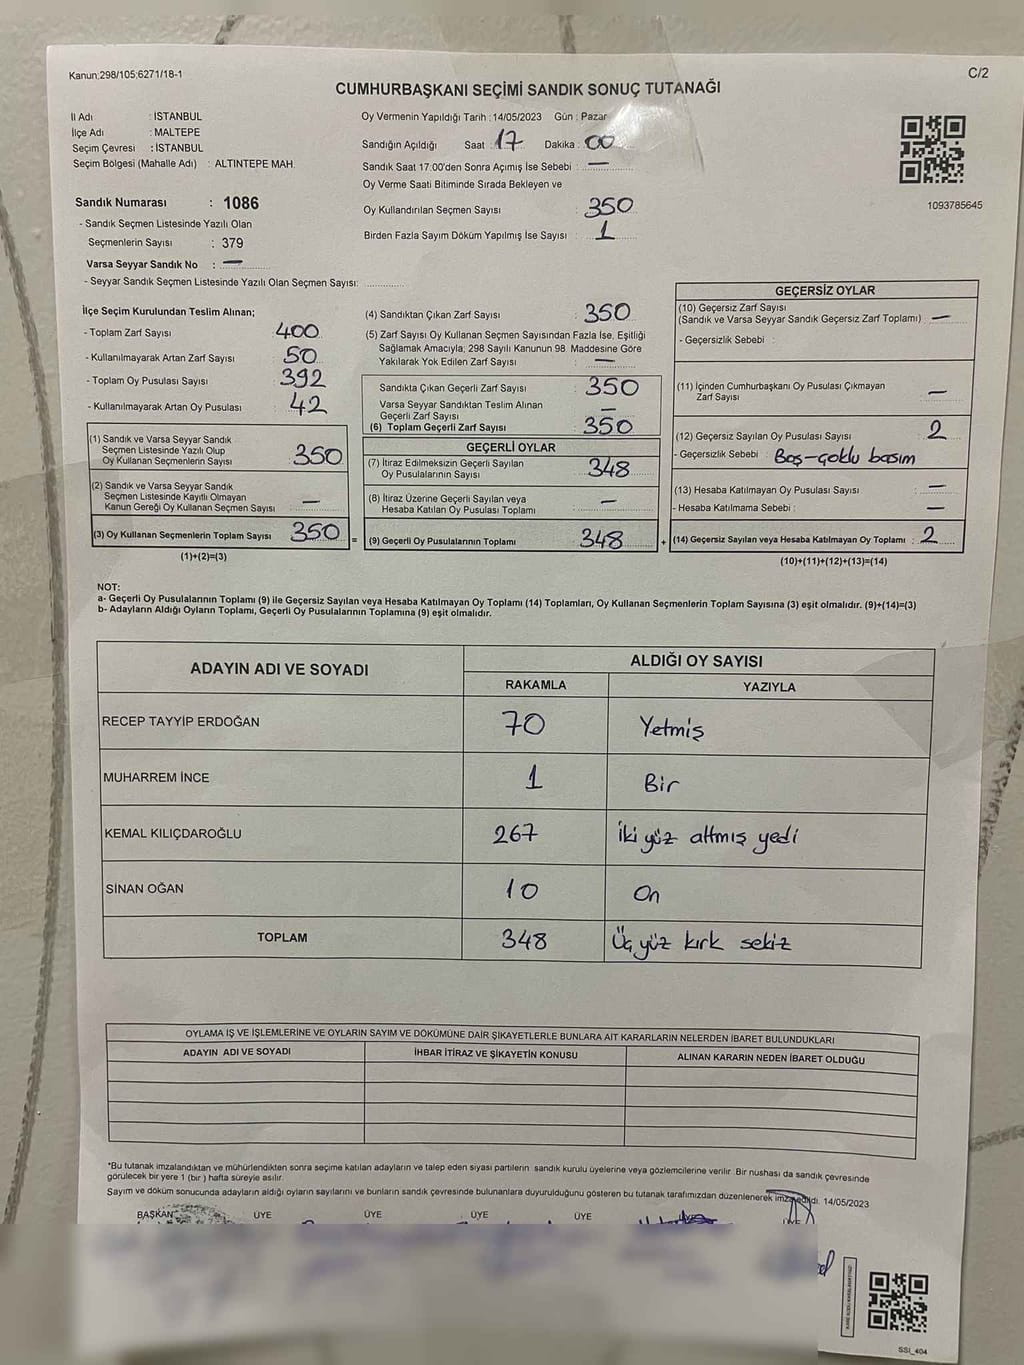 Kanun:298/105;6271/18-1
C/2
CUMHURBAŞKANI SEÇİMİ SANDIK SONUÇ TUTANAĞI
İl Adı : İSTANBUL
İlçe Adı : MALTEPE
Seçim Çevresi : İSTANBUL
Seçim Bölgesi (Mahalle Adı) : ALTINTEPE MAH.
Sandık Numarası : 1086
- Sandık Seçmen Listesinde Yazılı Olan
Seçmenlerin Sayısı : 379
Varsa Seyyar Sandık No : —
- Seyyar Sandık Seçmen Listesinde Yazılı Olan Seçmen Sayısı:
Oy Vermenin Yapıldığı Tarih :14/05/2023 Gün : Pazar
Sandığın Açıldığı Saat : 17 Dakika : 00
Sandık Saat 17:00'den Sonra Açımış İse Sebebi : —
Oy Verme Saati Bitiminde Sırada Bekleyen ve
Oy Kullandırılan Seçmen Sayısı : 350
Birden Fazla Sayım Döküm Yapılmış İse Sayısı : 1
1093785645
İlçe Seçim Kurulundan Teslim Alınan;
- Toplam Zarf Sayısı 400
- Kullanılmayarak Artan Zarf Sayısı : 50
- Toplam Oy Pusulası Sayısı : 392
- Kullanılmayarak Artan Oy Pusulası : 42
(1) Sandık ve Varsa Seyyar Sandık
Seçmen Listesinde Yazılı Olup
Oy Kullanan Seçmenlerin Sayısı : 350
(2) Sandık ve Varsa Seyyar Sandık
Seçmen Listesinde Kayıtlı Olmayan
Kanun Gereği Oy Kullanan Seçmen Sayısı : —
(3) Oy Kullanan Seçmenlerin Toplam Sayısı : 350
(1)+(2)=(3)
(4) Sandıktan Çıkan Zarf Sayısı : 350
(5) Zarf Sayısı Oy Kullanan Seçmen Sayısından Fazla İse, Eşitliği
Sağlamak Amacıyla; 298 Sayılı Kanunun 98. Maddesine Göre
Yakılarak Yok Edilen Zarf Sayısı : —
Sandıkta Çıkan Geçerli Zarf Sayısı : 350
Varsa Seyyar Sandıktan Teslim Alınan
Geçerli Zarf Sayısı : —
(6) Toplam Geçerli Zarf Sayısı : 350
GEÇERLİ OYLAR
(7) İtiraz Edilmeksizin Geçerli Sayılan
Oy Pusulalarının Sayısı : 348
(8) İtiraz Üzerine Geçerli Sayılan veya
Hesaba Katılan Oy Pusulası Toplamı : —
= (9) Geçerli Oy Pusulalarının Toplamı : 348 +
GEÇERSİZ OYLAR
(10) Geçersiz Zarf Sayısı
(Sandık ve Varsa Seyyar Sandık Geçersiz Zarf Toplamı) : —
- Geçersizlik Sebebi :
(11) İçinden Cumhurbaşkanı Oy Pusulası Çıkmayan
Zarf Sayısı : —
(12) Geçersiz Sayılan Oy Pusulası Sayısı : 2
- Geçersizlik Sebebi : Boş-Çoklu basım
(13) Hesaba Katılmayan Oy Pusulası Sayısı : —
- Hesaba Katılmama Sebebi : —
(14) Geçersiz Sayılan veya Hesaba Katılmayan Oy Toplamı : 2
(10)+(11)+(12)+(13)=(14)
NOT:
a- Geçerli Oy Pusulalarının Toplamı (9) ile Geçersiz Sayılan veya Hesaba Katılmayan Oy Toplamı (14) Toplamları, Oy Kullanan Seçmenlerin Toplam Sayısına (3) eşit olmalıdır. (9)+(14)=(3)
b- Adayların Aldığı Oyların Toplamı, Geçerli Oy Pusulalarının Toplamına (9) eşit olmalıdır.
ADAYIN ADI VE SOYADI ALDIĞI OY SAYISI
RAKAMLA YAZIYLA
RECEP TAYYİP ERDOĞAN 70 Yetmiş
MUHARREM İNCE 1 Bir
KEMAL KILIÇDAROĞLU 267 İki yüz altmış yedi
SİNAN OĞAN 10 On
TOPLAM 348 Üç yüz kırk sekiz
OYLAMA İŞ VE İŞLEMLERİNE VE OYLARIN SAYIM VE DÖKÜMÜNE DAİR ŞİKAYETLERLE BUNLARA AİT KARARLARIN NELERDEN İBARET BULUNDUKLARI
ADAYIN ADI VE SOYADI İHBAR İTİRAZ VE ŞİKAYETİN KONUSU ALINAN KARARIN NEDEN İBARET OLDUĞU
*Bu tutanak imzalandıktan ve mühürlendikten sonra seçime katılan adayların ve talep eden siyasi partilerin sandık kurulu üyelerine veya gözlemcilerine verilir. Bir nüshası da sandık çevresinde
görülecek bir yere 1 (bir ) hafta süreyle asılır.
Sayım ve döküm sonucunda adayların aldığı oyların sayılarını ve bunların sandık çevresinde bulunanlara duyurulduğunu gösteren bu tutanak tarafımızdan düzenlenerek imza edildi. 14/05/2023
BAŞKAN ÜYE ÜYE ÜYE ÜYE ÜYE
SSI_404